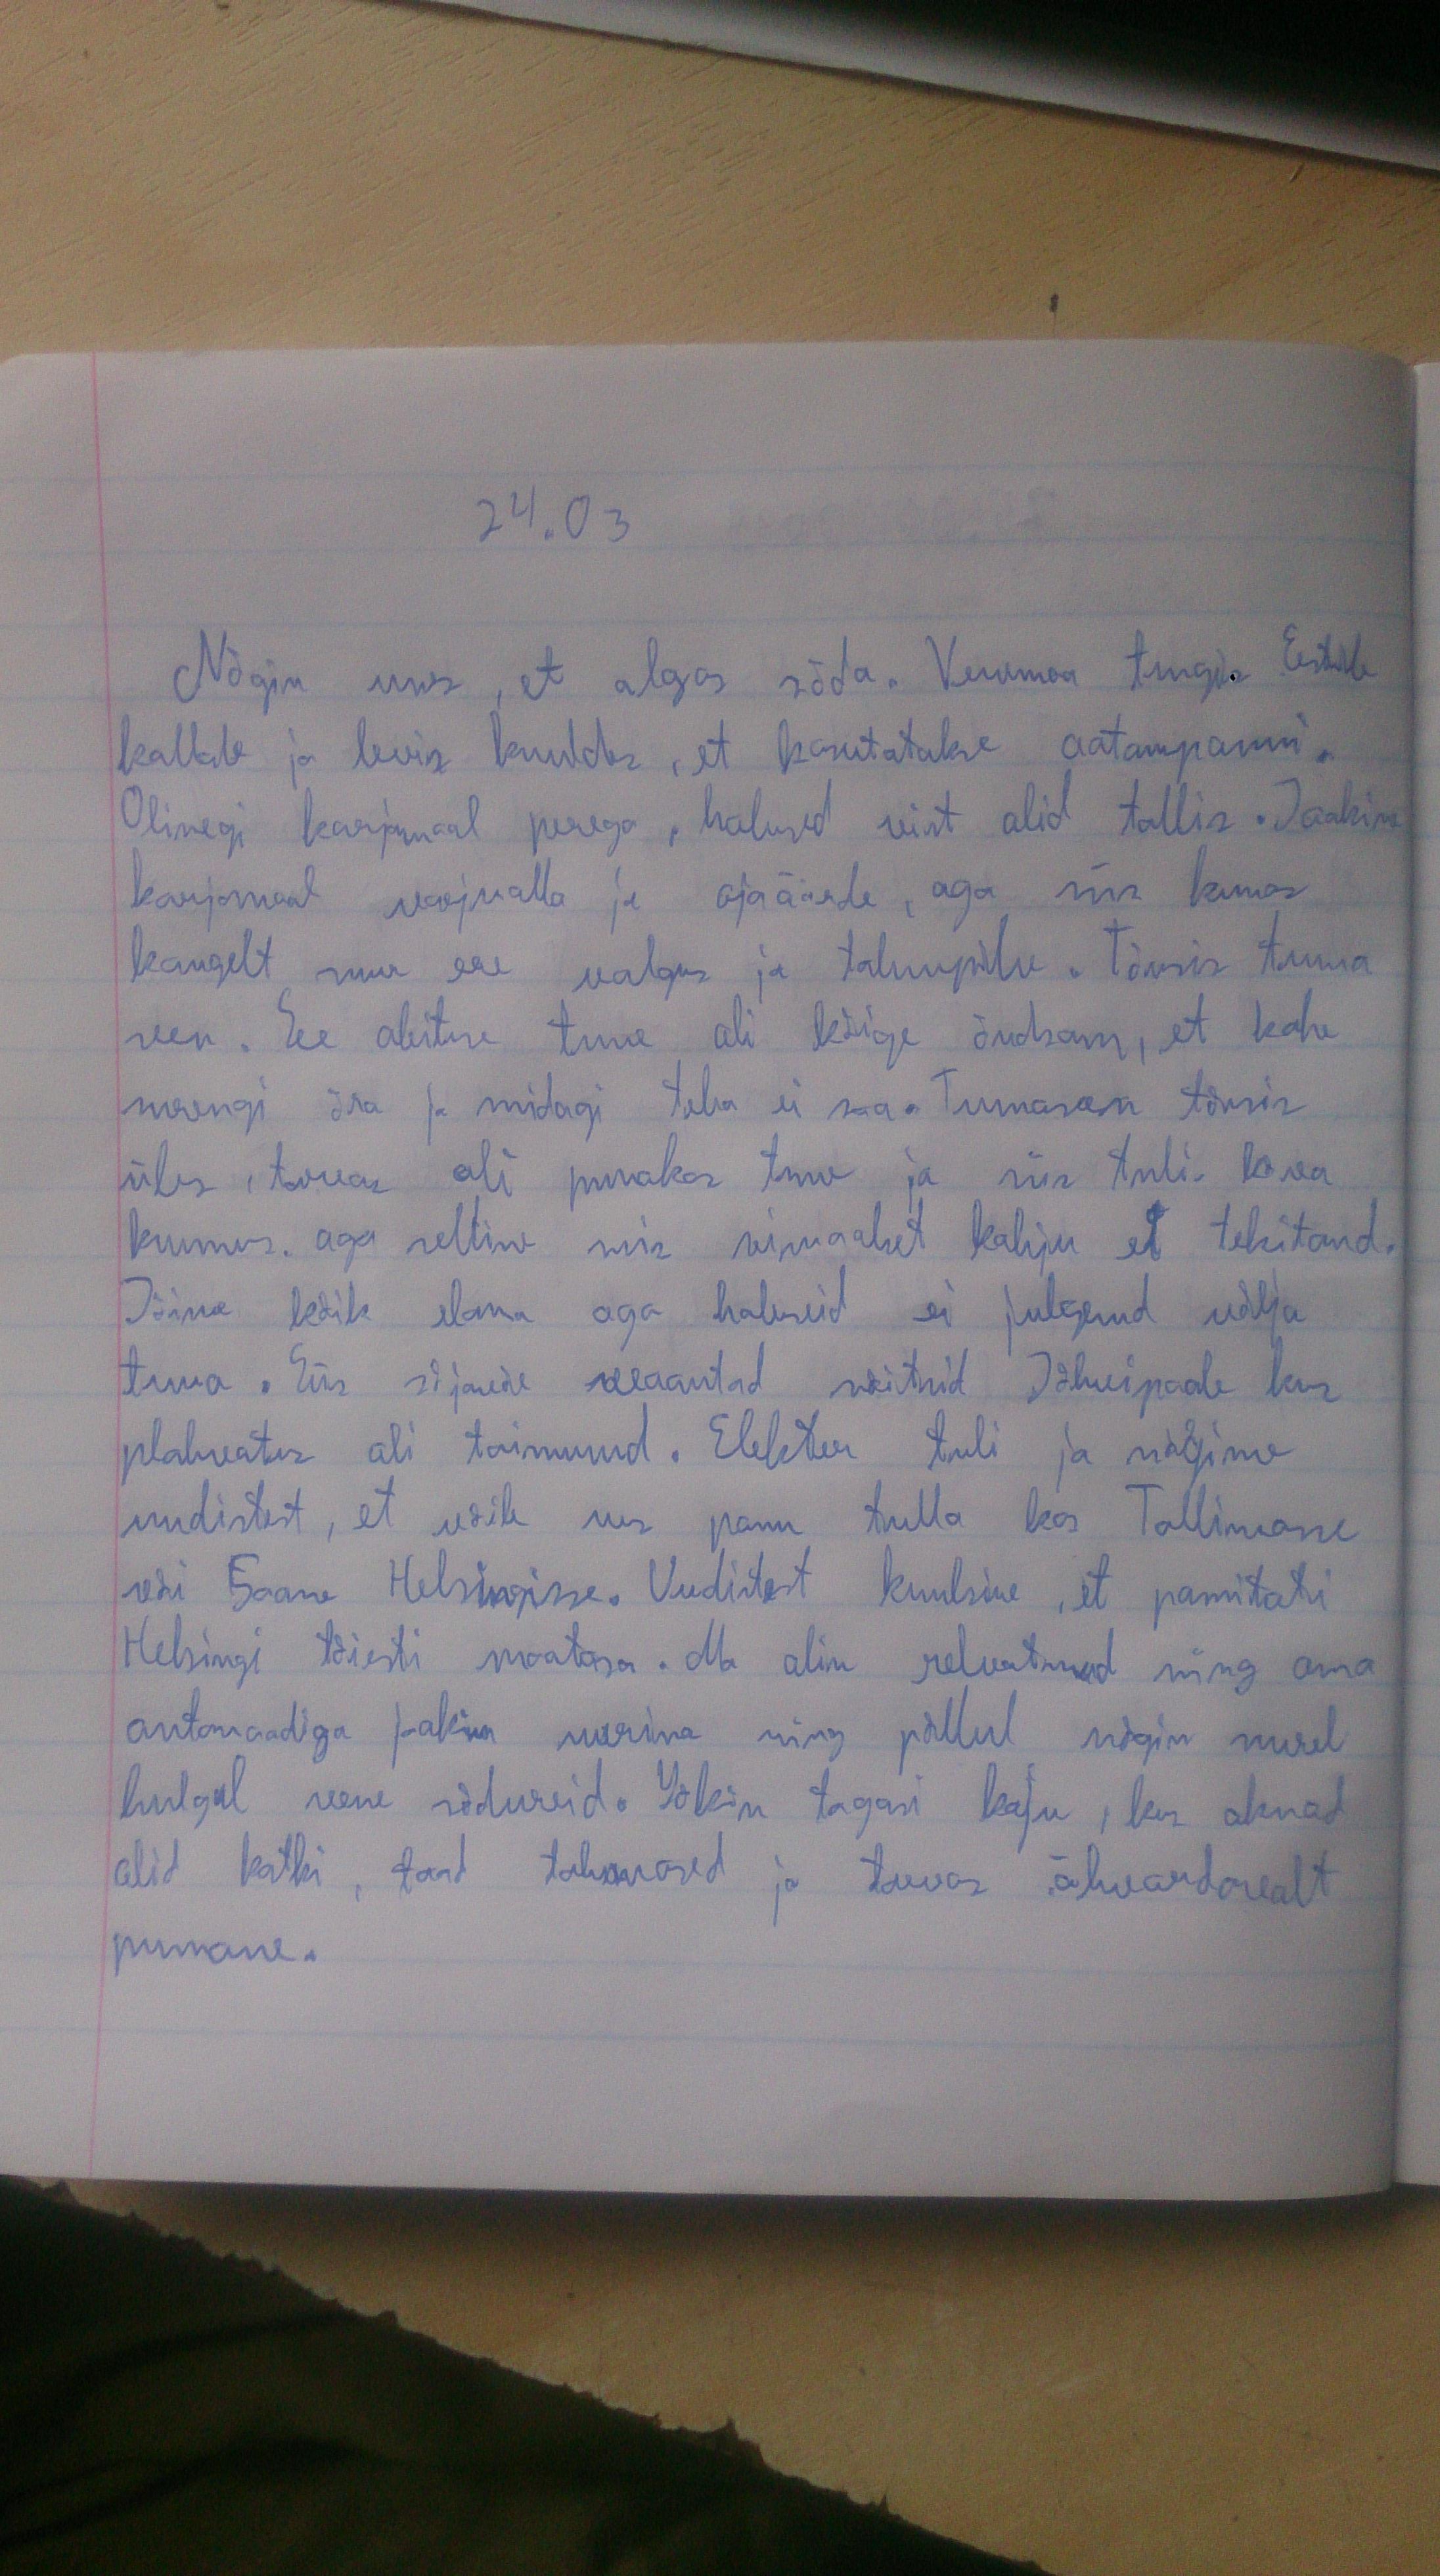 24.03
Nägin unes, et algas sõda. Venemaa tungis Eestile
kallale ja levis kuuldus, et kasutatakse aatompommi.
Olimegi karjamaal perega, hobused vist olid tallis. Jooksime
karjamaal varjualla ja oja äärde, aga siis kumas
kaugelt suur ere valgus ja tolmupilv. Tõusis tuuma
seen. See abitus tunne oli kõige õudsam, et kohe
surengi ära ja midagi teha ei saa. Tuumaseen tõusis
üles, taevas oli punakas tume ja siis tuli kõva
kuumus. aga selline mis viimaalset kahju ei tekitand.
Jäime kõik ellu aga hobuseid ei julgend välja
tuua. Siis sõjaväe veoautod sõitsid Jõhvi poole kus
plahvatus oli toimunud. Elekter tuli ja nägime
uudistest, et võib uus pomm tulla kas Tallinnasse
või Soome Helsingisse. Uudistest kuulsime, et pommitati
Helsingi täiesti maatasa. Ma olin relvastatud ning oma
automaadiga ning põllul nägin suurel
hulgal vene sõdureid. Jõksin tagasi koju, kus aknad
olid katki, toad tolmused ja taevas ähvardavalt
punane.